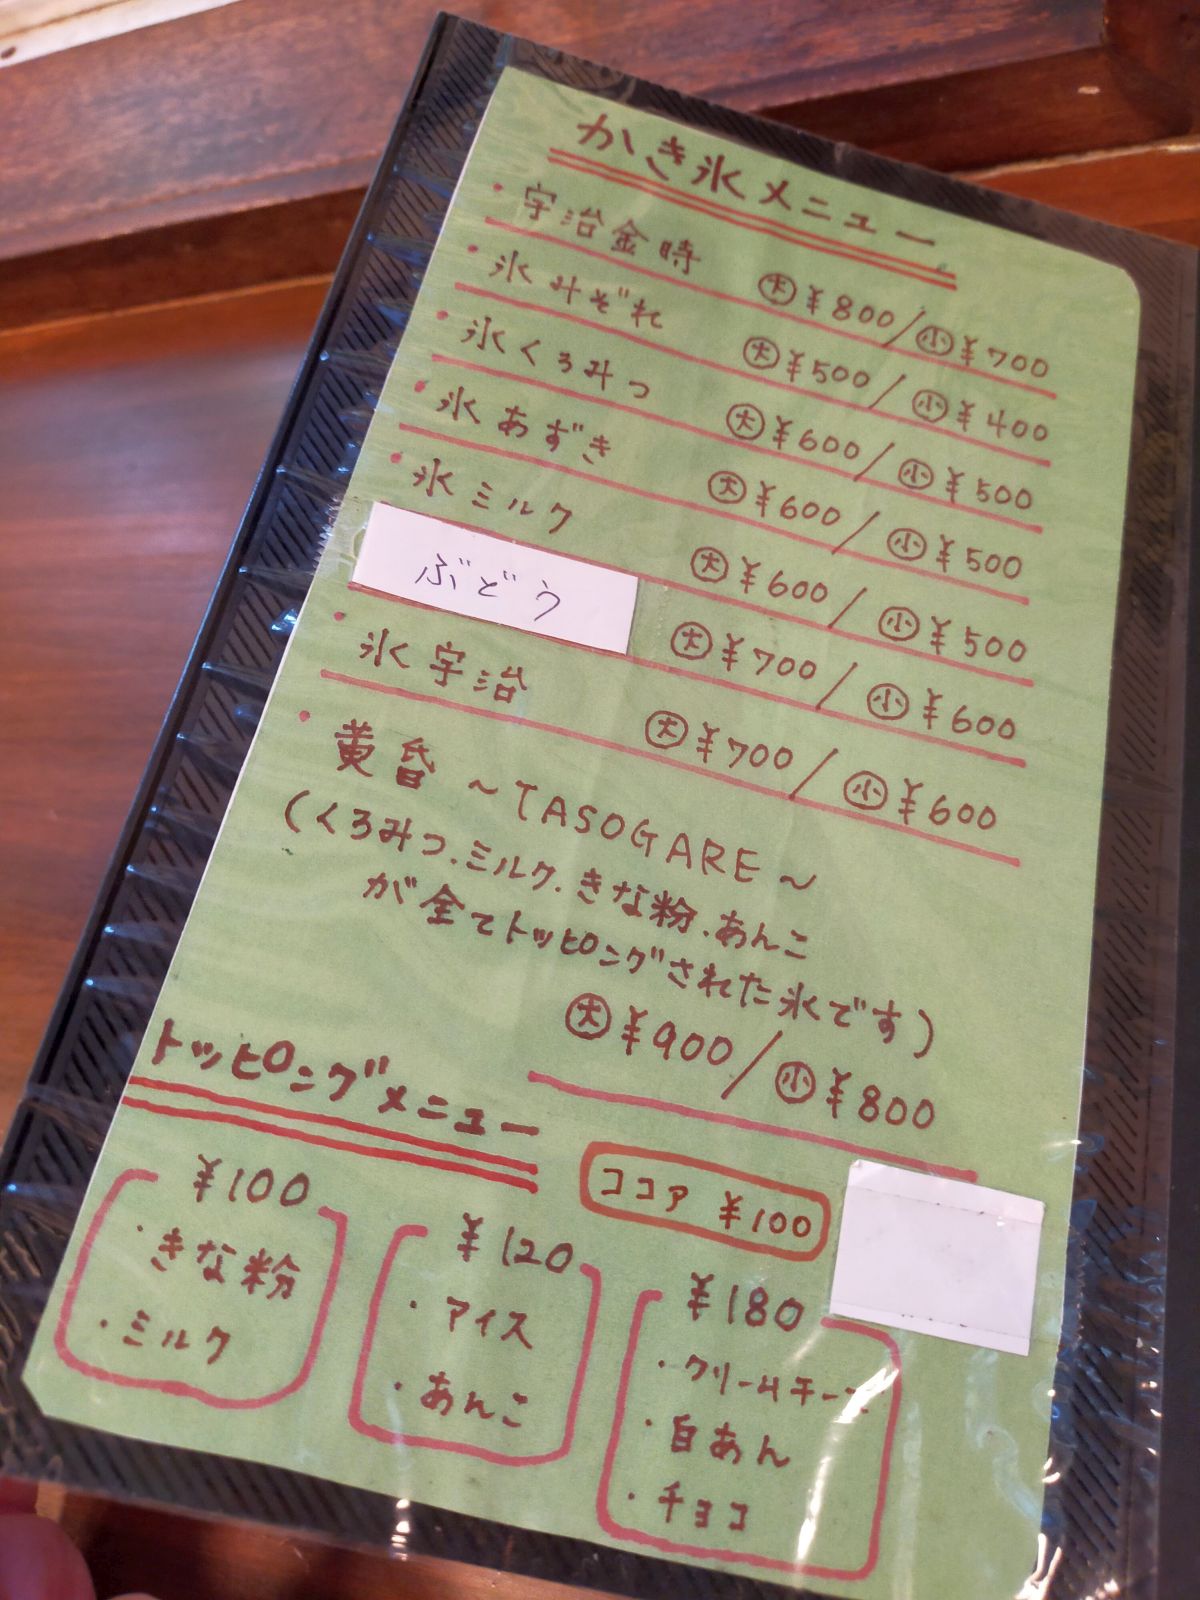 かき氷メニュー
・宇治金時 大¥800/小¥700
・氷みぞれ 大¥500/小¥400
・氷くろみつ 大¥600/小¥500
・氷あずき 大¥600/小¥500
・氷ミルク 大¥600/小¥500
ぶどう 大¥700/小¥600
・氷宇治 大¥700/小¥600
・黄昏 ~TASOGARE~
(くろみつ.ミルク.きな粉.あんこ
が全てトッピングされた氷です)
大¥900/小¥800
トッピングメニュー
ココア ¥100
¥100
・きな粉
・ミルク
¥120
・アイス
・あんこ
¥180
・クリームチーズ
・白あん
・チョコ